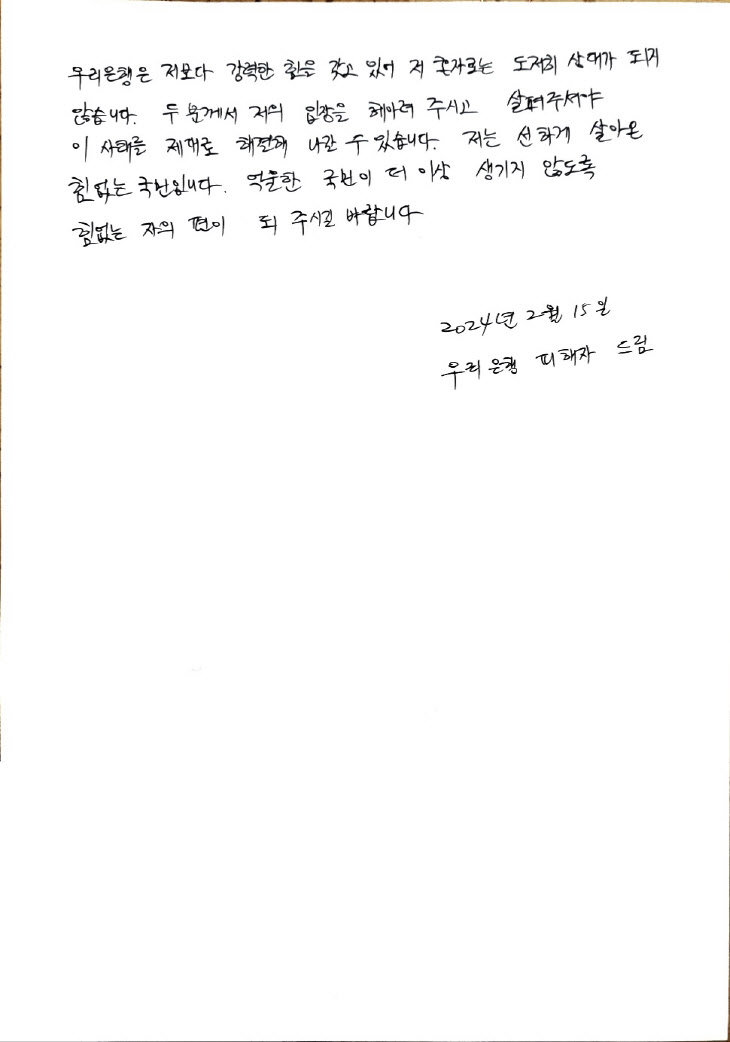 우리은행은 저보다 강력한 힘을 갖고 있어 저 혼자로는 도저히 상대가 되지
않습니다. 두 분께서 저의 입장을 헤아려 주시고 살펴주셔야
이 사태를 제대로 해결해 나갈 수 있습니다. 저는 선하게 살아온
힘없는 국민입니다. 억울한 국민이 더 이상 생기지 않도록
힘없는 자의 편이 되 주시길 바랍니다
2024년 2월 15일
우리은행 피해자 드림